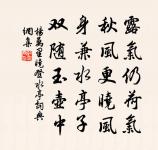 露氣仍荷氣
秋風更曉風
身兼水亭子
双随玉壺中
楊萬里曉登水亭詞典
網集